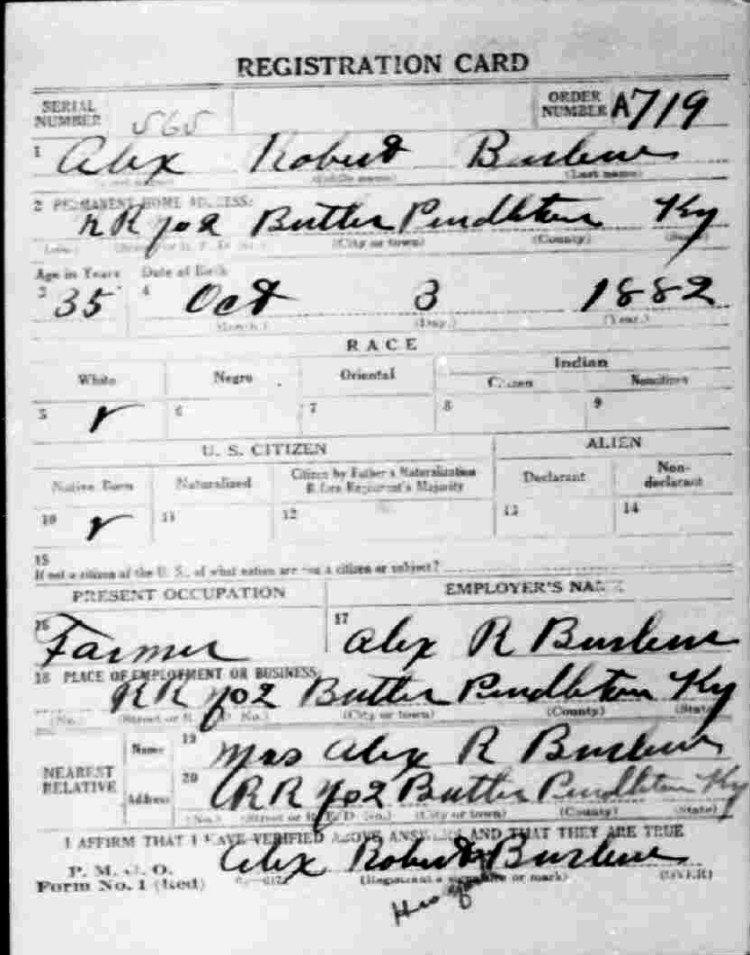 REGISTRATION CARD
SERIAL NUMBER 565 ORDER NUMBER A719
1 Alex Robert
(First name) (Middle name) (Last name)
2 PERMANENT HOME ADDRESS:
RR No2 Butler Pendleton Ky
(No.) (Street or R. F. D. No.) (City or town) (County) (State)
Age in Years Date of Birth
3 35 4 Oct 3 1882
(Month.) (Day.) (Year.)
RACE
White Negro Oriental Indian
Citizen Noncitizen
5 6 7 8 9
U. S. CITIZEN ALIEN
Native Born Naturalized Citizen by Father's Naturalization Before Registrant's Majority Declarant Non-declarant
10 11 12 13 14
15
If not a citizen of the U. S., of what nation are you a citizen or subject?
PRESENT OCCUPATION EMPLOYER'S NAME
16 Farmer 17 Alex R
18 PLACE OF EMPLOYMENT OR BUSINESS:
RR No2 Butler Pendleton Ky
(No.) (Street or R. F. D. No.) (City or town) (County) (State)
NEAREST RELATIVE Name 19 Mrs Alex R
Address 20 RR No2 Butler Pendleton Ky
(No.) (Street or R. F. D. No.) (City or town) (County) (State)
I AFFIRM THAT I HAVE VERIFIED ABOVE ANSWERS AND THAT THEY ARE TRUE
Alex Robert
P. M. G. O.
Form No. 1 (Red) (Registrant's signature or mark) (OVER)